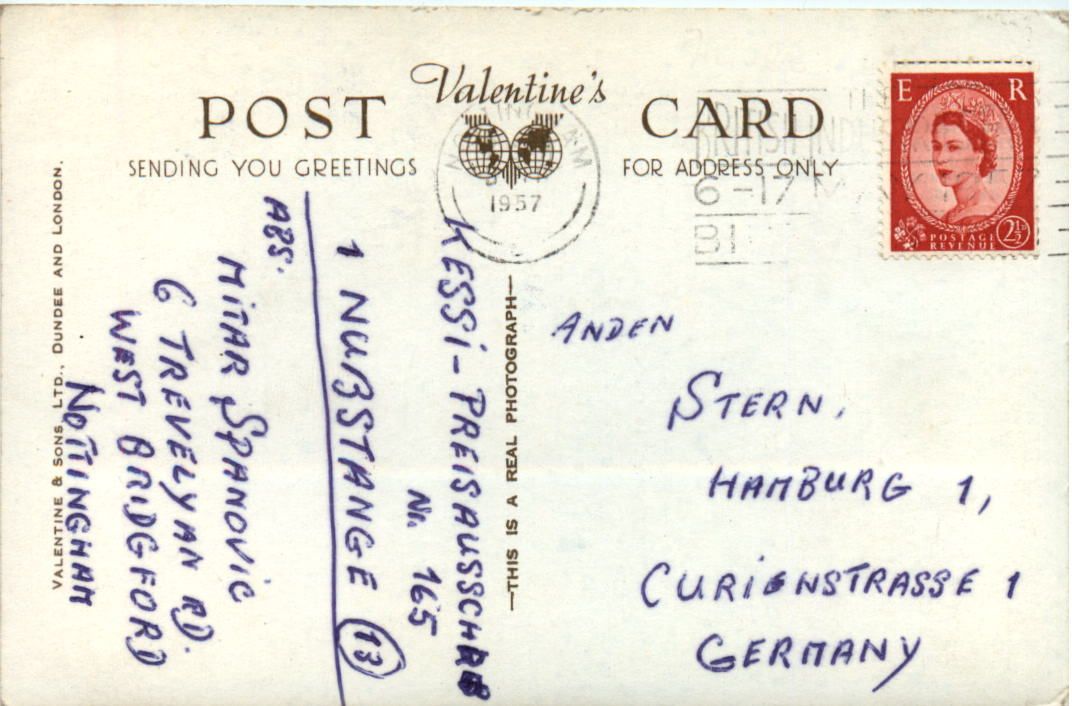 Valentine's
POST CARD
SENDING YOU GREETINGS
FOR ADDRESS ONLY
1957
BRITISH INDU
6-17 MAY
BI
E R
POSTAGE
REVENUE
2½D
KESSI-PREISAUSSCHRB
Nr. 165
1 NUßSTANGE 13
ABS.
MITAR SPANOVIC
6 TREVELYAN RD.
WEST BRIDGFORD
NOTTINGHAM
VALENTINE & SONS, LTD., DUNDEE AND LONDON.
—THIS IS A REAL PHOTOGRAPH—
ANDEN
STERN,
HAMBURG 1,
CURIENSTRASSE 1
GERMANY